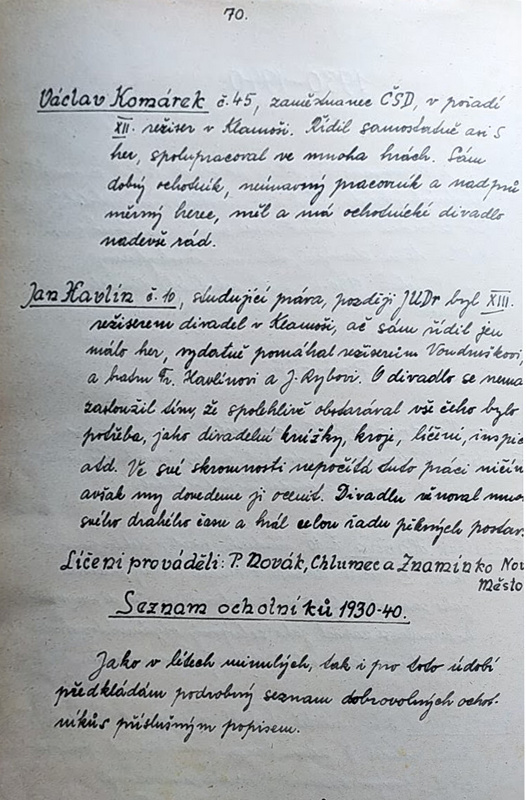 70.
Václav Komárek č. 45, zaměstnanec ČSD, v pořadí
XII. režiser v Klamoši. Řídil samostatně asi 5
her, spolupracoval ve mnoha hrách. Sám
dobrý ochotník, neúnavný pracovník a nadprů
měrný herec, měl a má ochotnické divadlo
nadevše rád.
Jan Havlín č. 10, studující práva, později JUDr byl XIII.
režiserem divadel v Klamoši, ač sám řídil jen
málo her, vydatně pomáhal režiserům Vondruškovi,
a bratru Fr. Havlínovi a J. Rybovi. O divadlo se nema
zasloužil tím, že spolehlivě obstarával vše čeho bylo
potřeba, jako divadelní knížky, kroje, líčení, inspic
atd. Ve své skromnosti nepočítá tuto práci ničím
avšak my dovedeme ji ocenit. Divadlu věnoval mno
svého drahého času a hrál celou řadu pěkných postav.
Líčení prováděli: P. Novák, Chlumec a Znamínko Nov
Město.
Seznam ochotníků 1930-40.
Jako v létech minulých, tak i pro toto údobí
předkládám podrobný seznam dobrovolných ochot-
níků s příslušným popisem.